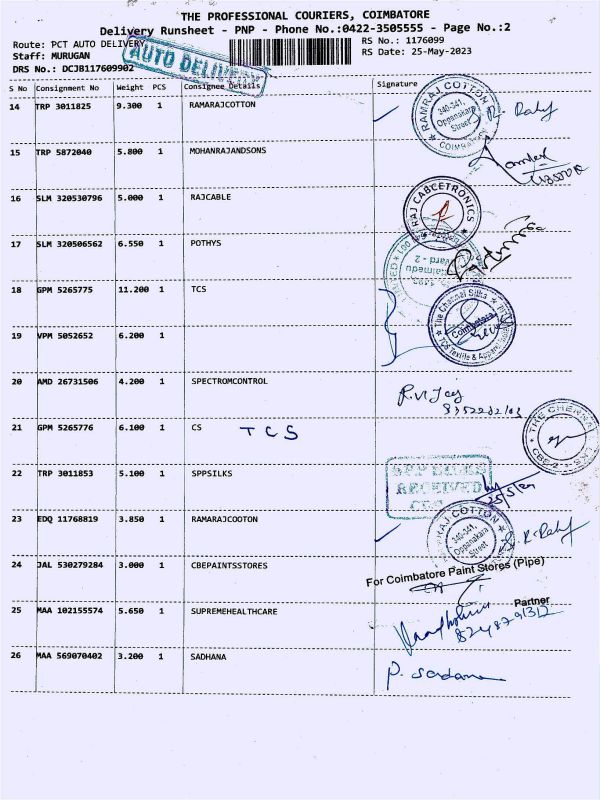 THE PROFESSIONAL COURIERS, COIMBATORE
Delivery Runsheet - PNP - Phone No.:0422-3505555 - Page No.:2
Route: PCT AUTO DELIVERY
RS No.: 1176099
Staff: MURUGAN
RS Date: 25-May-2023
DRS No.: DCJB117609902
AUTO DELIVERY
S No Consignment No Weight PCS Consignee Details Signature
14 TRP 3011825 9.300 1 RAMARAJCOTTON
RAMRAJ COTTON
340-341,
Oppanakara
Street
COIMBATORE
15 TRP 5872040 5.800 1 MOHANRAJANDSONS
16 SLM 320530796 5.000 1 RAJCABLE
RAJ CABCETRONICS
17 SLM 320506562 6.550 1 POTHYS
18 GPM 5265775 11.200 1 TCS
The Channai Silks
Coimbatore
TCS Textile & Apparel
19 VPM 5052652 6.200 1
20 AMD 26731506 4.200 1 SPECTROMCONTROL
R. Vijay
21 GPM 5265776 6.100 1 CS TCS
THE CHENNAI
CBE-2
22 TRP 3011853 5.100 1 SPPSILKS
SPP SILKS
RECEIVED
25/5/23
23 EDQ 11768819 3.850 1 RAMARAJCOOTON
RAMRAJ COTTON
340-341,
Oppanakara
Street
24 JAL 530279284 3.000 1 CBEPAINTSSTORES
For Coimbatore Paint Stores (Pipe)
Partner
25 MAA 102155574 5.650 1 SUPREMEHEALTHCARE
26 MAA 569070402 3.200 1 SADHANA
P. Sadana